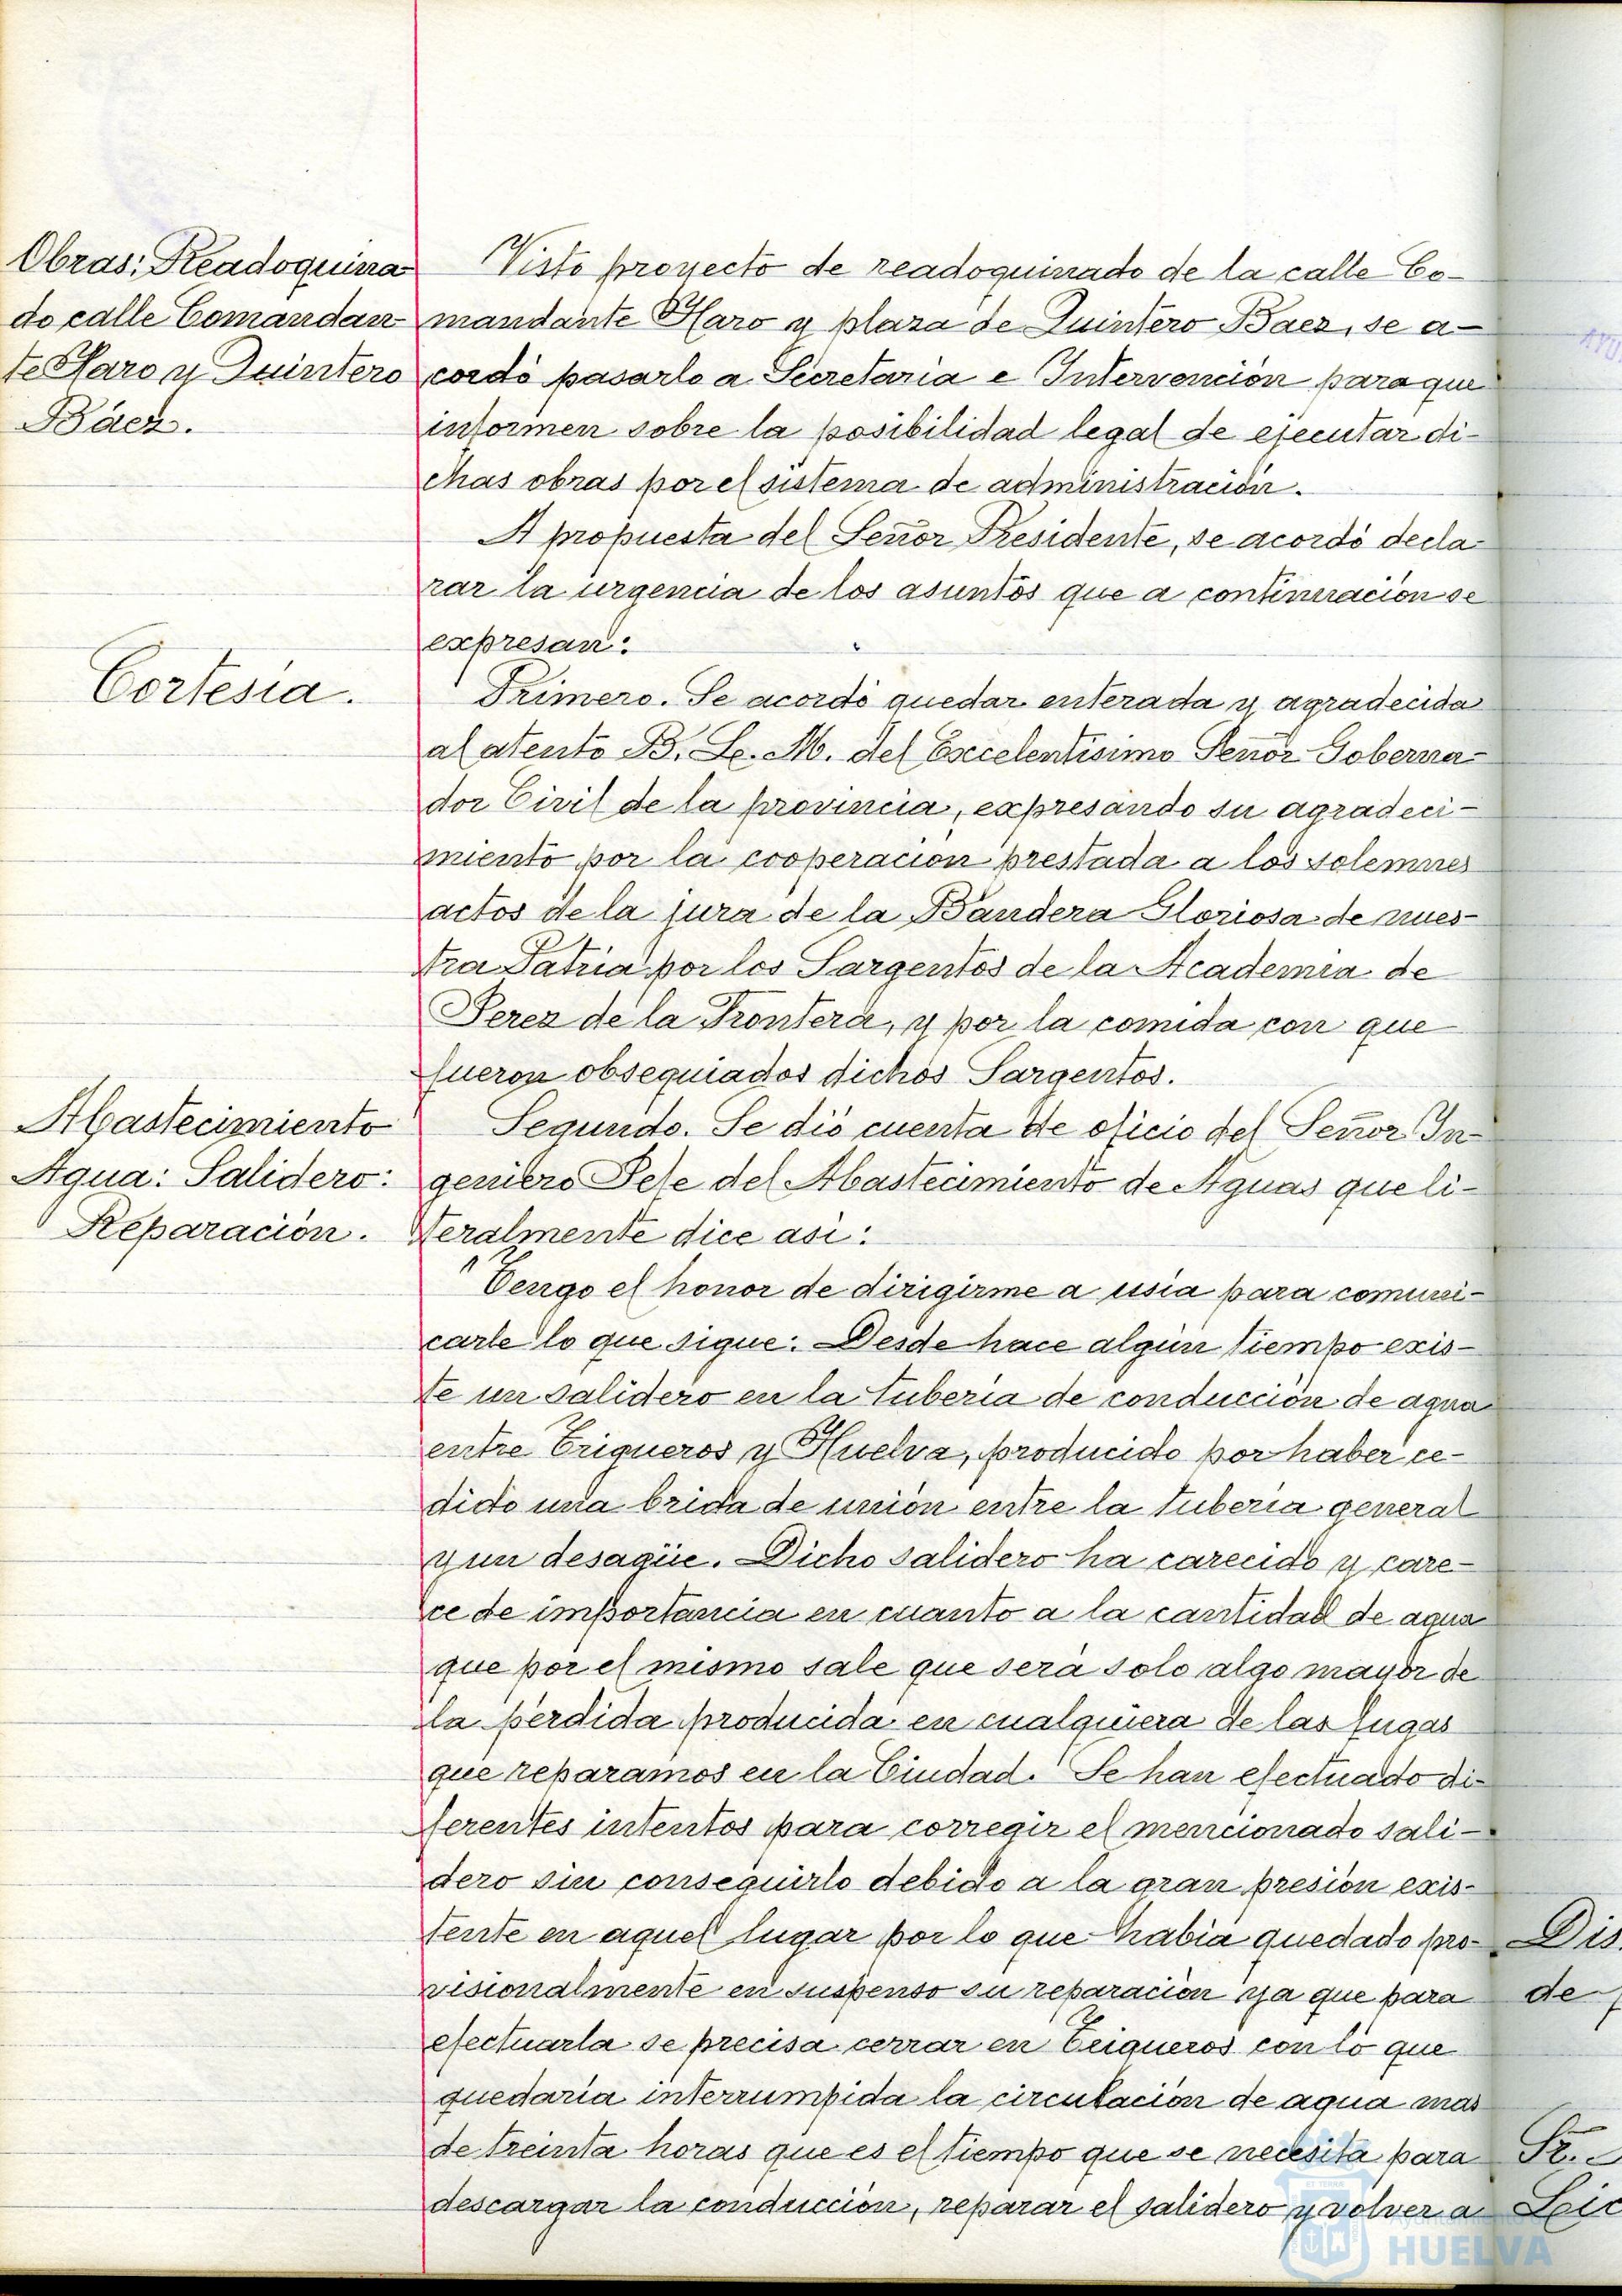 Obras; Readoquina
do calle Comandan
te Haro y Quintero
Báez.
Visto proyecto de readoquinado de la calle Co-
mandante Haro y plaza de Quintero Baez, se a-
cordó pasarlo a Secretaria e Intervención para que
informen sobre la posibilidad legal de ejecutar di-
chas obras por el sistema de administración.
A propuesta del Señor Presidente, se acordó decla-
rar la urgencia de los asuntos que a continuación se
expresan:
Cortesia.
Primero. Se acordó quedar enterada y agradecida
al atento B. L. M. del Excelentísimo Señor Goberna-
dor Civil de la provincia, expresando su agradeci-
miento por la cooperación prestada a los solemnes
actos de la jura de la Bandera Gloriosa de nues-
tra Patria por los Sargentos de la Academia de
Jerez de la Frontera, y por la comida con que
fueron obsequiados dichos Sargentos.
Abastecimiento
Agua: Salidero:
Reparación.
Segundo. Se dió cuenta de oficio del Señor In-
geniero Jefe del Abastecimiento de Aguas que li-
teralmente dice asi:
"Tengo el honor de dirigirme a usia para comuni-
carle lo que sigue: Desde hace algún tiempo exis-
te un salidero en la tuberia de conducción de agua
entre Trigueros y Huelva, producido por haber ce-
dido una brida de unión entre la tuberia general
y un desagüe. Dicho salidero ha carecido y care-
ce de importancia en cuanto a la cantidad de agua
que por el mismo sale que será solo algo mayor de
la pérdida producida en cualquiera de las fugas
que reparamos en la Ciudad. Se han efectuado di-
ferentes intentos para corregir el mencionado sali-
dero sin conseguirlo debido a la gran presión exis-
tente en aquel lugar por lo que habia quedado pro-
visionalmente en suspenso su reparación ya que para
efectuarla se precisa cerrar en Trigueros con lo que
quedaria interrumpida la circulación de agua mas
de treinta horas que es el tiempo que se necesita para
descargar la conducción, reparar el salidero y volver a
Dis
de
Sr.
HUELVA